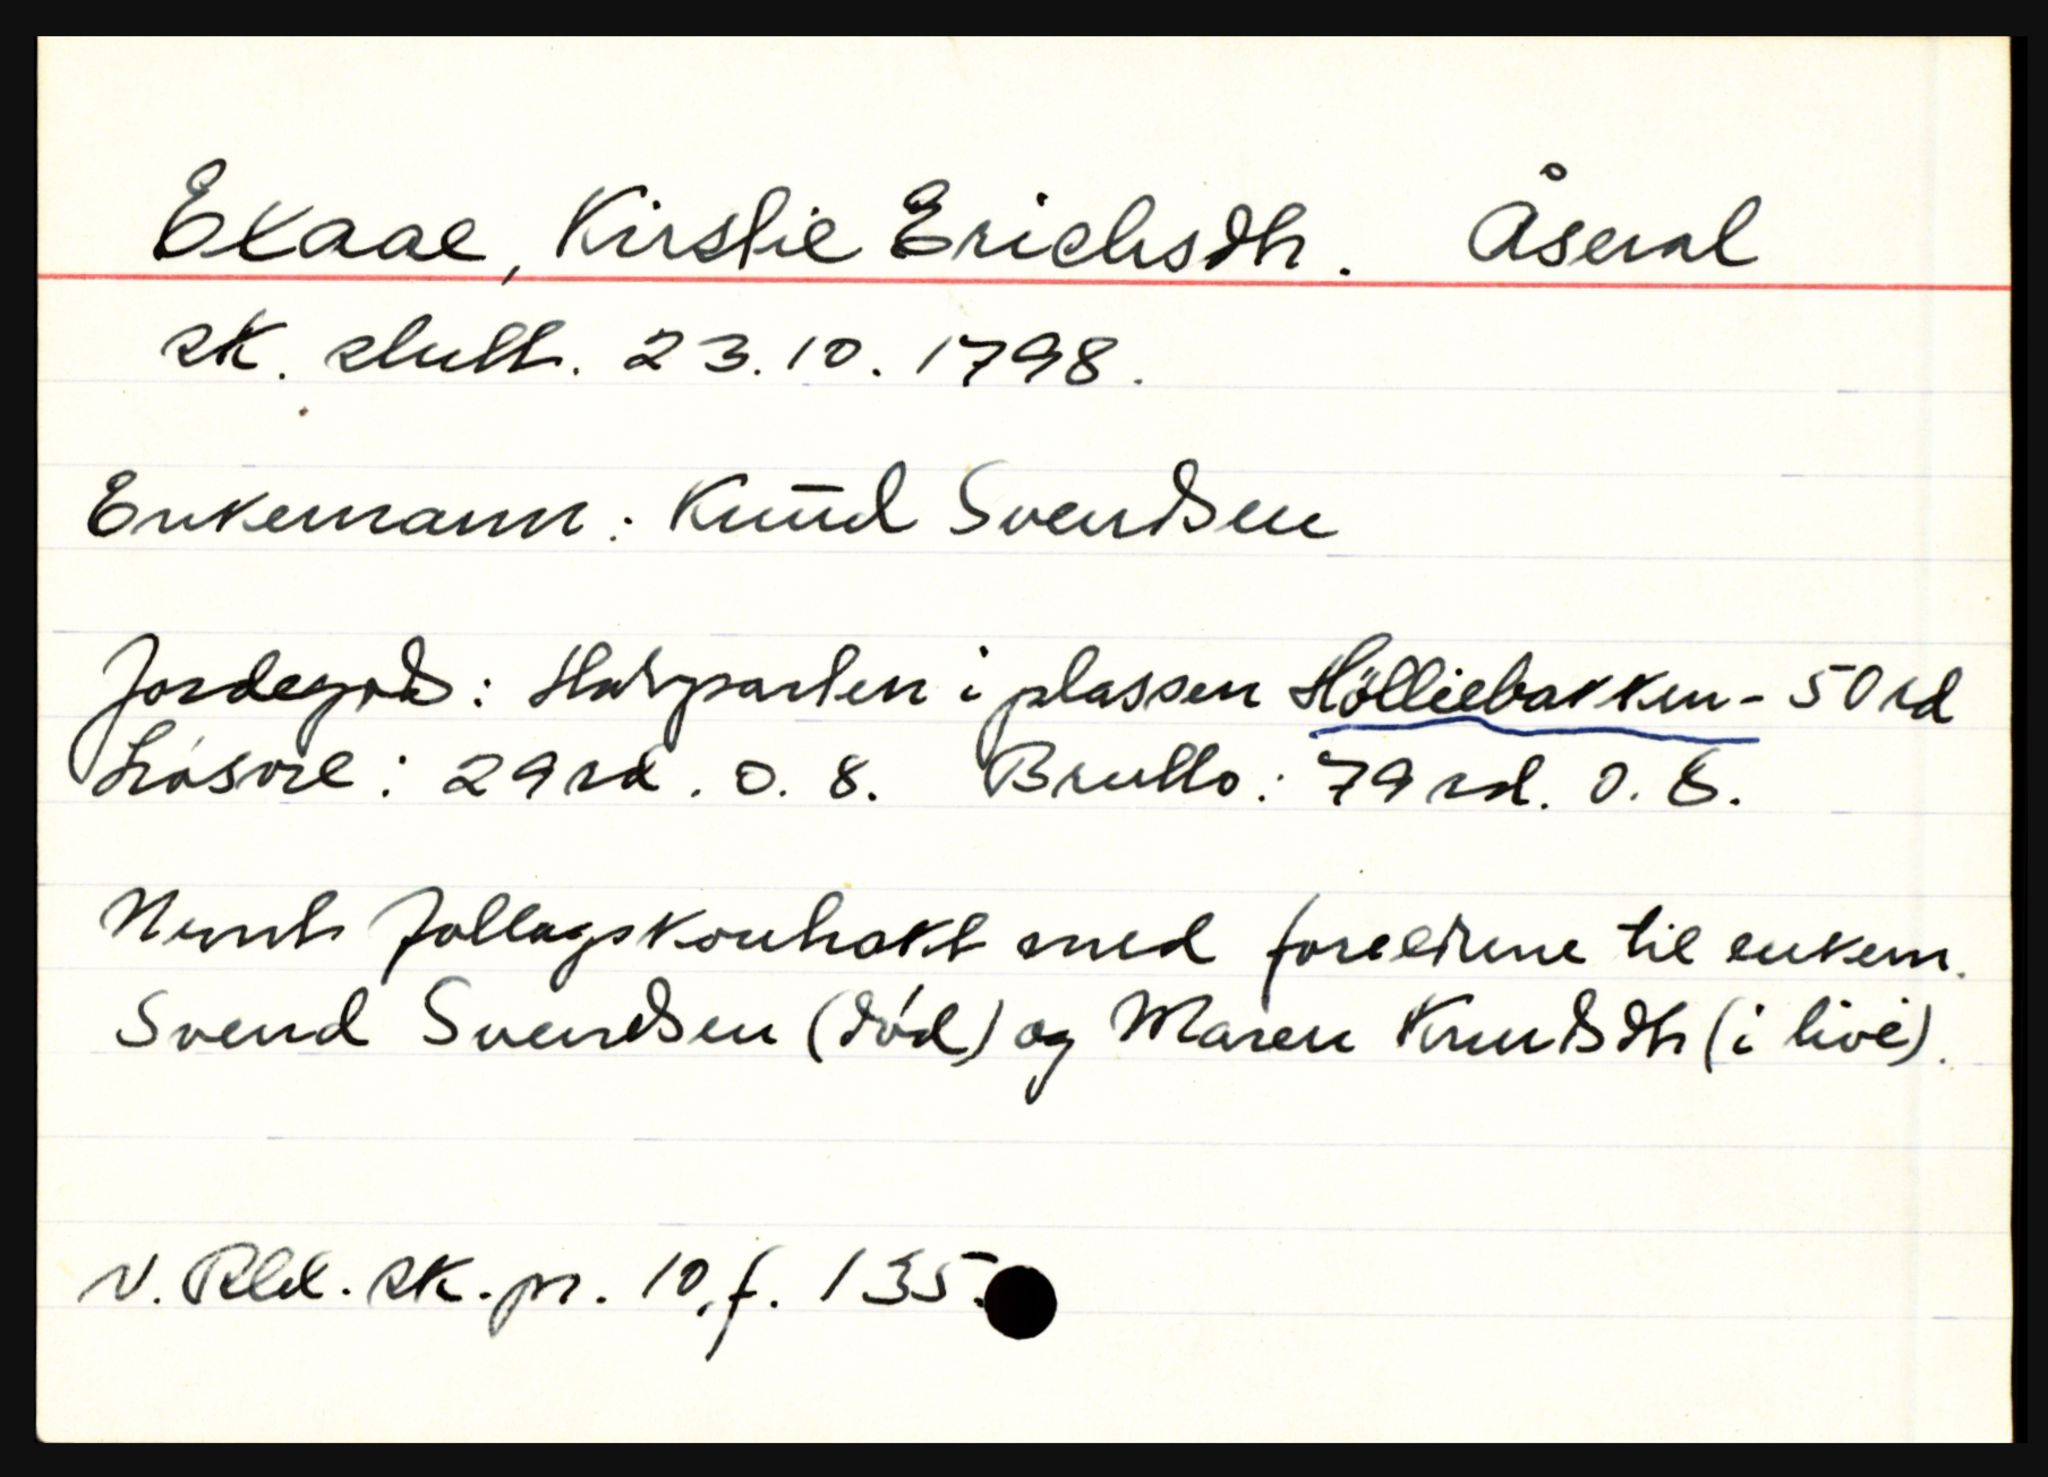 Ekaae, Kirstie Erichsdtr. Åseral
sk. slutt. 23.10.1798.
Enkemann: Knud Svendsen
Jordegods: Halvparten i plassen Hölliebakken - 50 rd
Løsøre: 29 rd. 0. 8. Brutto: 79 rd. 0. 8.
Nevnt follagskontrakt med foreldrene til enkem.
Svend Svendsen (död) og Maren Knudsdtr (i live).
N. Rbd. sk. pr. 10, f. 135.